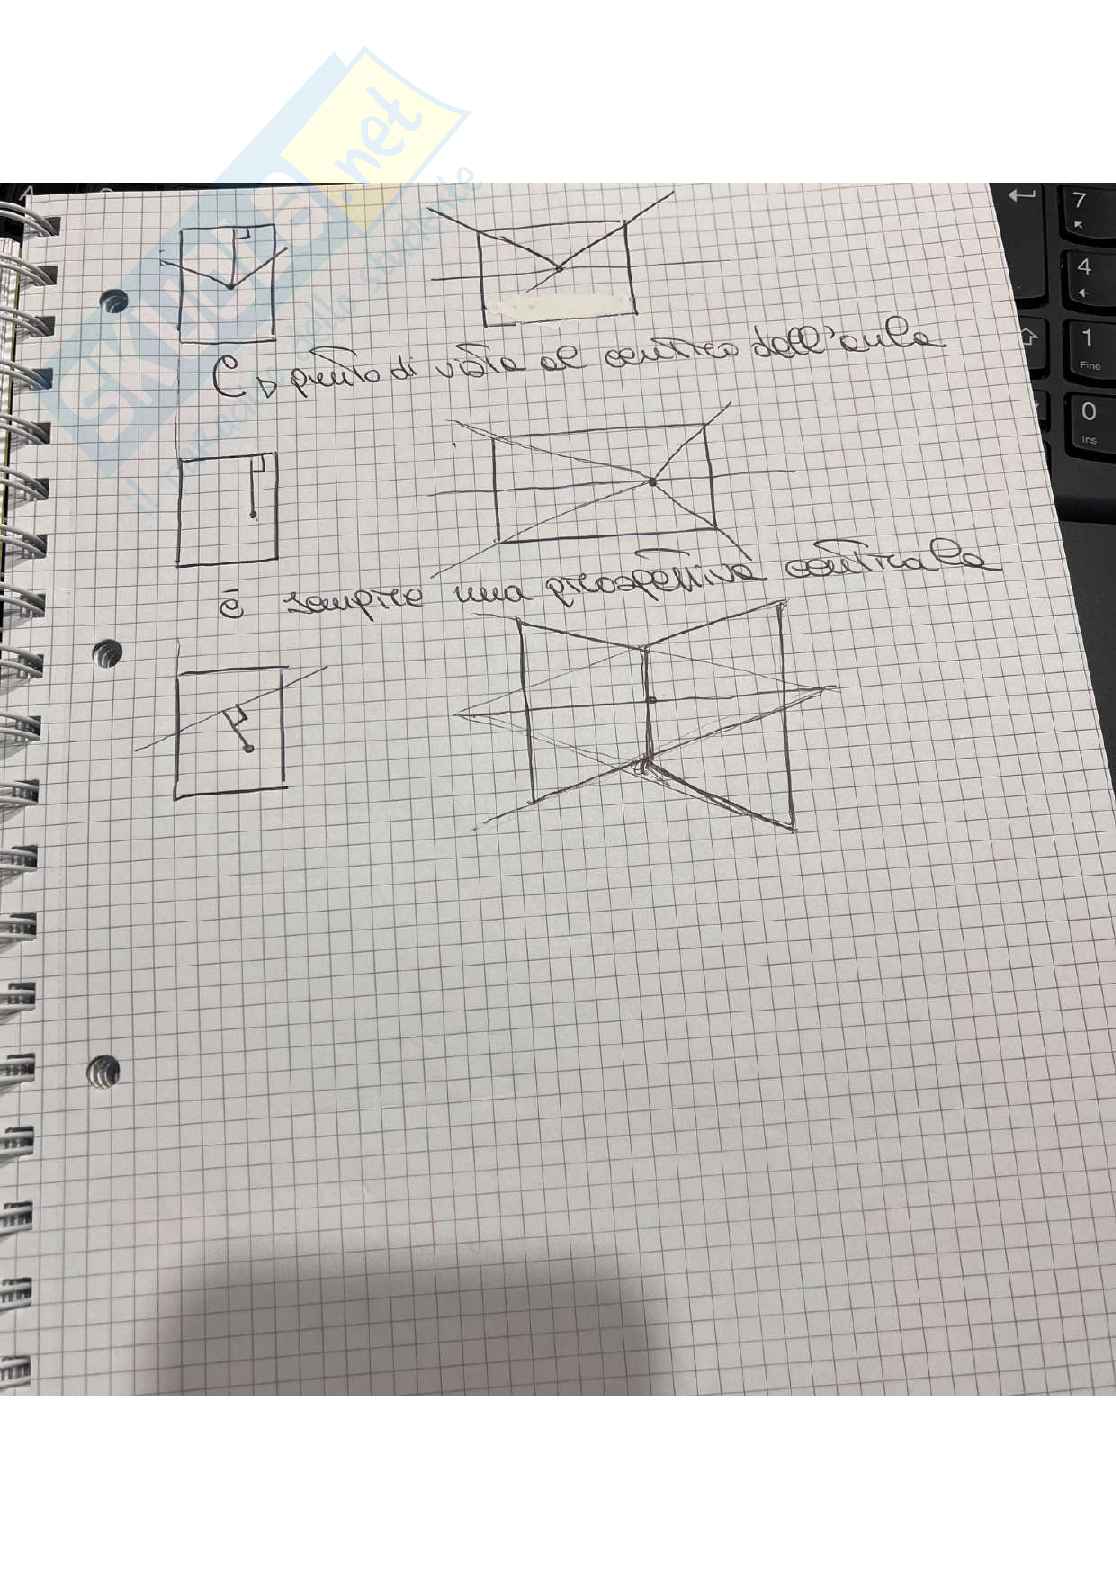 SKUOLA.net
il paradiso dello studente
7
4
1
Fine
0
Ins
C ▷ punto di vista al centro dell'aula
è sempre una prospettiva centrale